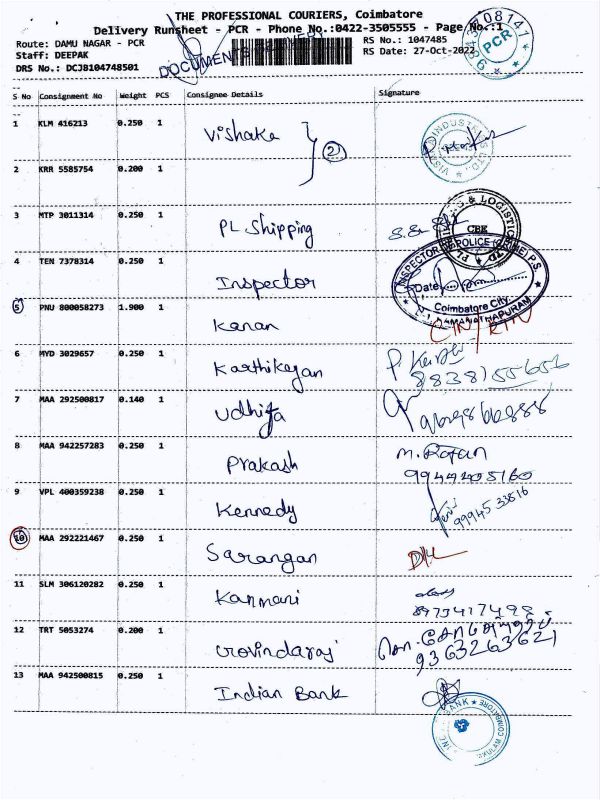 THE PROFESSIONAL COURIERS, Coimbatore
Delivery Runsheet - PCR - Phone No.:0422-3505555 - Page No.:1
Route: DAMU NAGAR - PCR RS No.: 1047485
Staff: DEEPAK RS Date: 27-Oct-2022
DRS No.: DCJB104748501
DOCUMENTS DELIVERY
PCR
S No Consignment No Weight PCS Consignee Details Signature
1 KLM 416213 0.250 1 Vishaka
2 KRR 5585754 0.200 1 (2)
3 MTP 3011314 0.250 1 PL Shipping
CBE
4 TEN 7378314 0.250 1 Inspector
INSPECTOR OF POLICE (CRIME) P.S.
Date
Coimbatore City.
RAMANATHAPURAM
5 PNU 800058273 1.900 1 Kanan
6 MYD 3029657 0.250 1 Karthikeyan 8838155656
7 MAA 292500817 0.140 1 Udhiya
8 MAA 942257283 0.250 1 Prakash M. Rajan
9944205160
9 VPL 400359238 0.250 1 Kennedy 99945 33516
10 MAA 292221467 0.250 1 Sarangan D/L
11 SLM 306120282 0.250 1 Kanmani
8973417498
12 TRT 5053274 0.200 1 Govindaraj
9363263621
13 MAA 942500815 0.250 1 Indian Bank